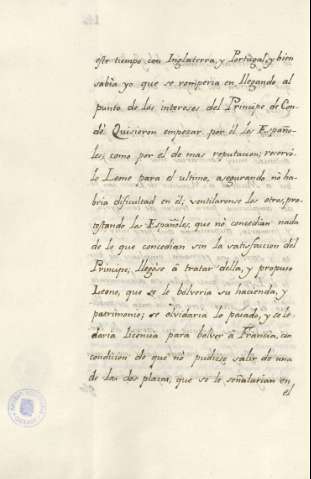 este tiempo con Inglaterra, y Portugal, y bien
sabia yo que se romperia en llegando al
punto de los intereses del Principe de Con-
dè. Quisieron empezar por èl los Españo-
les, como por el de mas reputacion; reservó-
lo Leone para el ultimo, asegurando no ha-
bria dificultad en èl; ventilaronse los otros, pro-
testando los Españoles, que nò concedian nada
de lo que concedian sin la satisfaccion del
Principe; llegóse â tratar della, y propuso
Leone, que se le bolveria su hacienda, y
patrimonio; se olvidaria lo pasado, y se le
daria licencia para bolver â Francia, con
condicion de que nò pudiese salir de una
de las dos plazas, que se le señalarian en
el